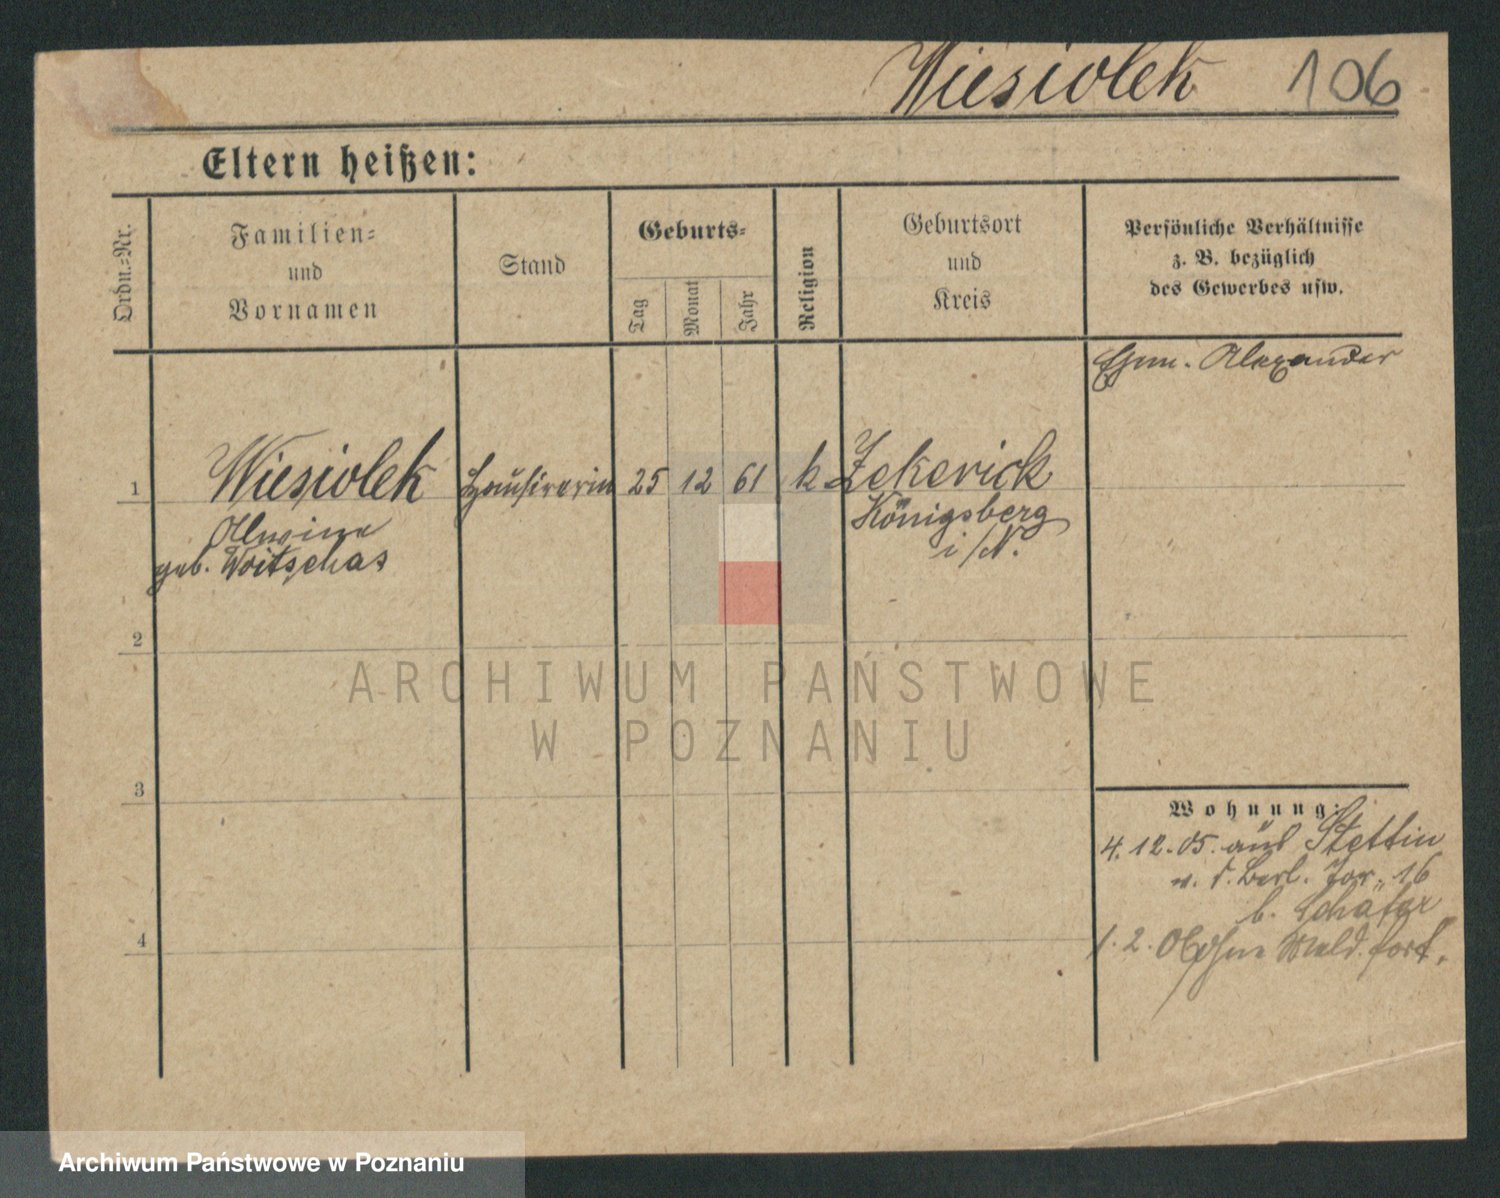 Wiesiolek 106
Eltern heißen:
Ordn.=Nr.
Familien=
und
Vornamen
Stand
Geburts=
Tag
Monat
Jahr
Religion
Geburtsort
und
Kreis
Persönliche Verhältnisse
z. B. bezüglich
des Gewerbes usw.
Ehem. Alexander
1 Wiesiolek Hausirerin 25 12 61 k Zekerick
Alwine
geb. Woitschas
Königsberg
i/N.
2
3
4
Wohnung:
4. 12. 05. aus Stettin
v. d. Berl. Tor 16
b. Schäfer
1. 2. 06 ohne Meld. fort.
ARCHIWUM PAŃSTWOWE
W POZNANIU
Archiwum Państwowe w Poznaniu